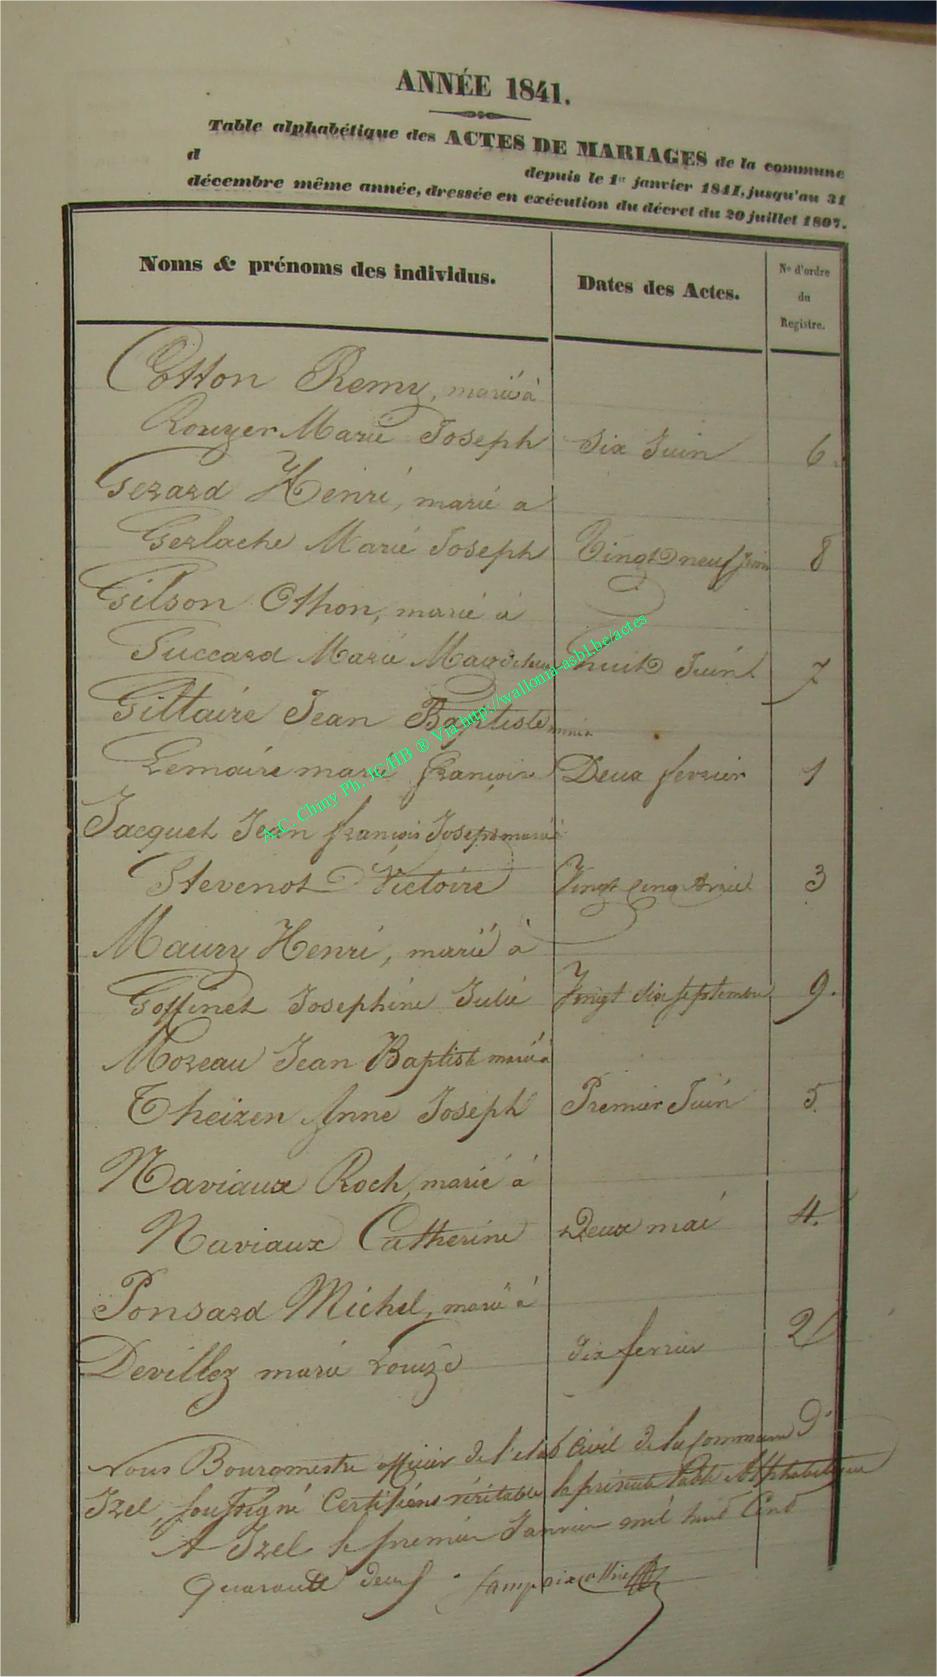 ANNÉE 1841.
Table alphabétique des ACTES DE MARIAGES de la commune
d depuis le 1er janvier 1841, jusqu'au 31
décembre même année, dressée en exécution du décret du 20 juillet 1807.
Noms & prénoms des individus. Dates des Actes. No d'ordre du Registre.
Cotton Remy, marié à
Rouyer Marie Joseph Six Juin 6
Gerard Henri, marié a
Gerlache Marie Joseph Vingt neuf Juin 8
Gilson Othon, marié à
Succard Marie huit Juin 7
Giltaire Jean Baptiste
Lemaire marie françoise Deux fevrier 1
Jacquet Jean françois Joseph marié à
Stevenot Victoire Vingt cinq 3
Maury Henri, marié à
Goffinet Josephine Julie Vingt six septembre 9.
Moreau Jean Baptiste marié à
Theizen Anne Joseph Premier Juin 5
Naviaux Roch, marié à
Naviaux Catherine Deux mai 4.
Ponsard Michel, marié à
Devillez marie Louise dix fevrier 2
Nous Bourgmestre officier de l'etat civil de la commune d'
Izel, soussigné Certifions véritable la présente table Alphabetique
A Izel le premier Janvier mil huit Cent
quarante deux.
A.C. Chiny Ph. JC/HB ® Via http://wallonia-asbl.be/actes